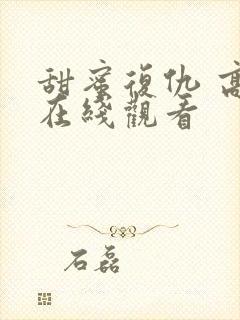 甜蜜復仇 高
在綫觀看
石磊